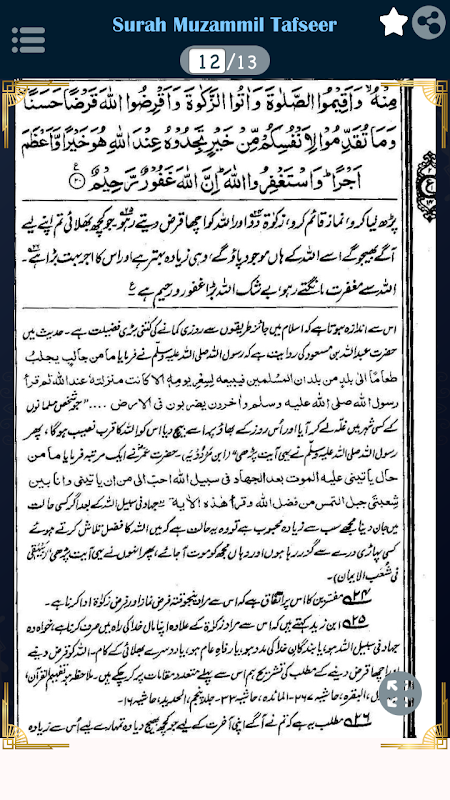 Surah Muzammil Tafseer
12/13
مِنْهُ ۙ وَاَقِيْمُوا الصَّلٰوةَ وَاٰتُوا الزَّكٰوةَ وَاَقْرِضُوا اللّٰهَ قَرْضًا حَسَنًا ؕ
وَمَا تُقَدِّمُوْا لِاَنْفُسِكُمْ مِّنْ خَيْرٍ تَجِدُوْهُ عِنْدَ اللّٰهِ هُوَ خَيْرًا وَّاَعْظَمَ
اَجْرًا ؕ وَاسْتَغْفِرُوا اللّٰهَ ؕ اِنَّ اللّٰهَ غَفُوْرٌ رَّحِيْمٌ ﴿۲۰﴾
پڑھ لیا کرو، نماز قائم کرو، زکوٰۃ دو اور اللہ کو اچھا قرض دیتے رہو۔ جو کچھ بھلائی تم اپنے لیے
آگے بھیجو گے اسے اللہ کے ہاں موجود پاؤ گے، وہی زیادہ بہتر ہے اور اس کا اجر بہت بڑا ہے۔
اللہ سے مغفرت مانگتے رہو، بے شک اللہ بڑا غفور و رحیم ہے ؏
اس سے اندازہ ہوتا ہے کہ اسلام میں جائز طریقوں سے روزی کمانے کی کتنی بڑی فضیلت ہے۔ حدیث میں
حضرت عبداللہ بن مسعود کی روایت ہے کہ رسول اللہ صلی اللہ علیہ وسلم نے فرمایا ما من جالب یجلب
طعامًا الی بلد من بلدان المسلمین فیبیعہ لسعر یومہ الا کانت منزلتہ عند اللہ ثم قرأ
رسول اللہ صلی اللہ علیہ وسلم واٰخرون یضربون فی الارض .... "جو شخص مسلمانوں
کے کسی شہر میں غلہ لے کر آیا اور اُس روز کے بھاؤ پر اسے بیچ دیا اس کو اللہ کا قرب نصیب ہوگا، پھر
رسول اللہ صلی اللہ علیہ وسلم نے یہی آیت پڑھی" (ابن مردویہ)۔ حضرت عمرؓ نے ایک مرتبہ فرمایا ما من
حال یأتینی علیہ الموت بعد الجهاد فی سبیل اللہ احب الیّ من ان یاتینی وانا بین
شعبتی جبل التمس من فضل اللہ وقرأ هذہ الاٰیة۔ "جہاد فی سبیل اللہ کے بعد اگر کسی حالت
میں جان دینا مجھے سب سے زیادہ محبوب ہے تو وہ یہ حالت ہے کہ میں اللہ کا فضل تلاش کرتے ہوئے
کسی پہاڑی درے سے گزر رہا ہوں اور وہاں مجھ کو موت آ جائے، پھر انہوں نے یہی آیت پڑھی" (بیہقی
فی شعب الایمان)۔
۲۴ مفسرین کا اس پر اتفاق ہے کہ اس سے مراد پنجوقتہ فرض نماز اور فرض زکوٰۃ ادا کرنا ہے۔
۲۵ ابن زید کہتے ہیں کہ اس سے مراد زکوٰۃ کے علاوہ اپنا مال خدا کی راہ میں صرف کرنا ہے، خواہ وہ
جہاد فی سبیل اللہ ہو، یا بندگان خدا کی مدد ہو، یا رفاہ عام ہو، یا دوسرے بھلائی کے کام۔ اللہ کو قرض دینے
اور اچھا قرض دینے کے مطلب کی تشریح ہم اس سے پہلے متعدد مقامات پر کر چکے ہیں۔ ملاحظہ ہو تفہیم القرآن،
البقرہ، حاشیہ ۲۶۷۔ المائدہ، حاشیہ ۳۳۔ جلد پنجم، الحدید، حاشیہ ۱۶۔
۲۶ مطلب یہ ہے کہ تم نے آگے اپنی آخرت کے لیے جو کچھ بھیج دیا وہ تمہارے لیے اُس سے زیادہ